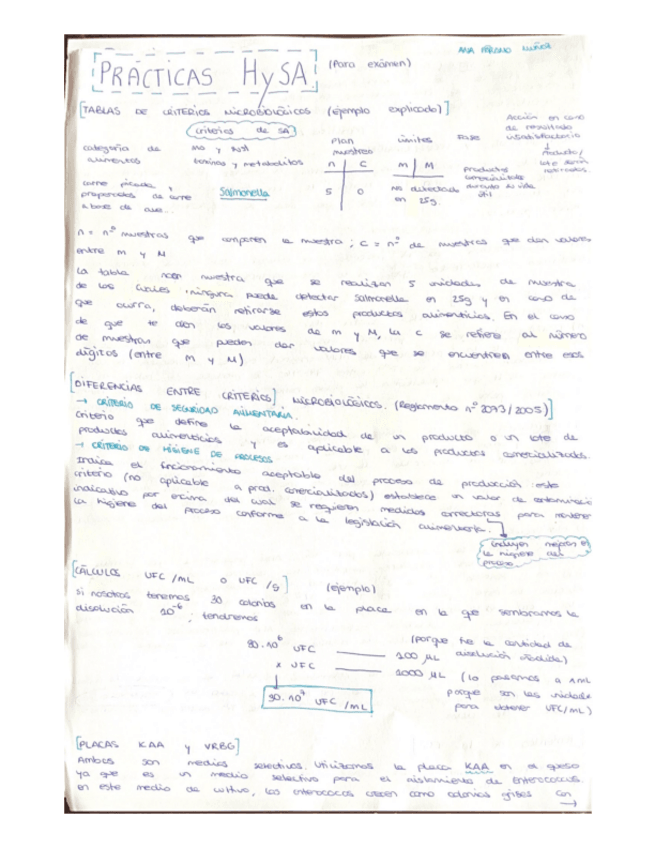 ANA MUÑOZ
PRÁCTICAS HySA (Para exámen)
[TABLAS DE CRITERIOS MICROBIOLÓGICOS (ejemplo explicado)]
criterios de SA
Acción en caso de resultado insatisfactorio
Producto/lote serán retirados.
categoría de alimentos
mo y sus toxinas y metabolitos
Plan muestreo
límites
Fase
n c m M
carne picada, preparados de carne a base de ave...
Salmonella
5 0 No detectado en 25g
productos comercializados durante su vida útil
n = nº muestras que componen la muestra ; c = nº de muestras que dan valores
entre m y M
La tabla nos muestra que se realizan 5 unidades de muestra
de las cuales ninguna puede detectar Salmonella en 25g y en caso de
que ocurra, deberán retirarse estos productos alimenticios. En el caso
de que te den los valores de m y M, la c se refiere al número
de muestras que pueden dar valores que se encuentren entre esos
dígitos (entre m y M)
[DIFERENCIAS ENTRE CRITERIOS MICROBIOLÓGICOS. (Reglamento nº 2073/2005)]
→ CRITERIO DE SEGURIDAD ALIMENTARIA.
Criterio que define la aceptabilidad de un producto o un lote de
productos alimenticios y es aplicable a los productos comercializados.
→ CRITERIO DE HIGIENE DE PROCESOS
Indica el funcionamiento aceptable del proceso de producción este
criterio (no aplicable a prod. comercializados) establece un valor de contaminación
indicativo por encima del cual se requieren medidas correctoras para mantener
la higiene del proceso conforme a la legislación alimentaria.
Incluyen mejoras en la higiene del proceso.
[CÁLCULOS UFC/mL o UFC/g] (ejemplo)
si nosotros tenemos 30 colonias en la placa en la que sembramos la
disolución 10⁻⁶, tendremos
30·10⁶ UFC —— 100 µL (porque fue la cantidad de disolución añadida)
x UFC —— 1000 µL (lo pasamos a 1 mL porque son las unidades para obtener UFC/mL)
30·10⁷ UFC/mL
[PLACAS KAA y VRBG]
Ambos son medios selectivos. Utilizamos la placa KAA en el queso
ya que es un medio selectivo para el aislamiento de enterococcus.
en este medio de cultivo, los enterococos crecen como colonias grises con
→